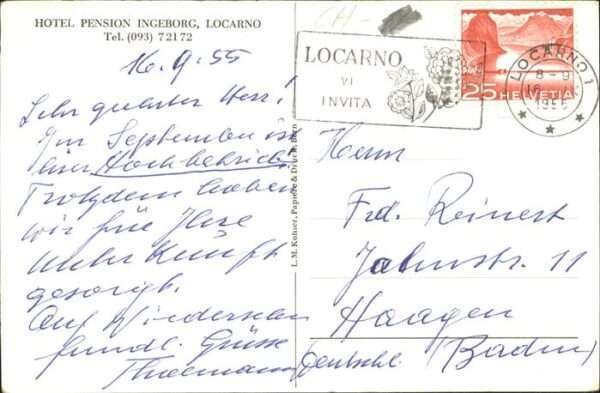 HOTEL PENSION INGEBORG, LOCARNO
Tel. (093) 72172
16.9.55
Sehr geehrter Herr!
Im September ist
hier Hochbetrieb!
Trotzdem haben
wir für Ihre
Unterkunft
gesorgt.
Auf Wiedersehen
freundl. Grüsse
Thoemann
L. M. Kohler, Papiere & Druck, Bern
CH-
LOCARNO
VI
INVITA
25 HELVETIA
LOCARNO 1
8-9
1955
Herrn
Frd. Reinert
Jahnstr. 11
Haagen
(Deutschl. Baden)